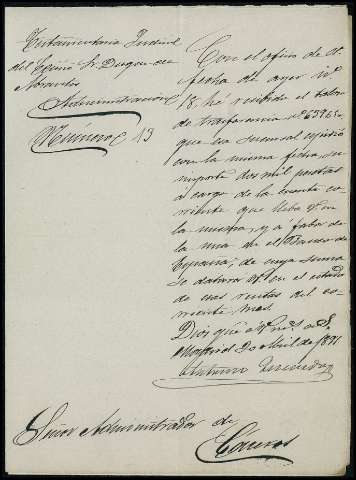 Testamentaria Judicial
del Excmo Sr. Duque de
Abrantes
Administracion
Número 13
Con el oficio de V.
fecha de ayer nº
18, hé recibido el talon
de trasferencia nº
que esa sucursal espidió
con la misma fecha, su
importe dos mil pesetas
á cargo de la cuenta co
rriente que lleba V. en
la misma, y á fabor de
la mia de el Banco de
España; de cuya suma
se datará V. en el estado
de sus rentas del co
rriente mes.
Dios gue á V. ms. as.
Madrid 2 Abril de 1891
Antonio
Señor Administrador de
Cáceres